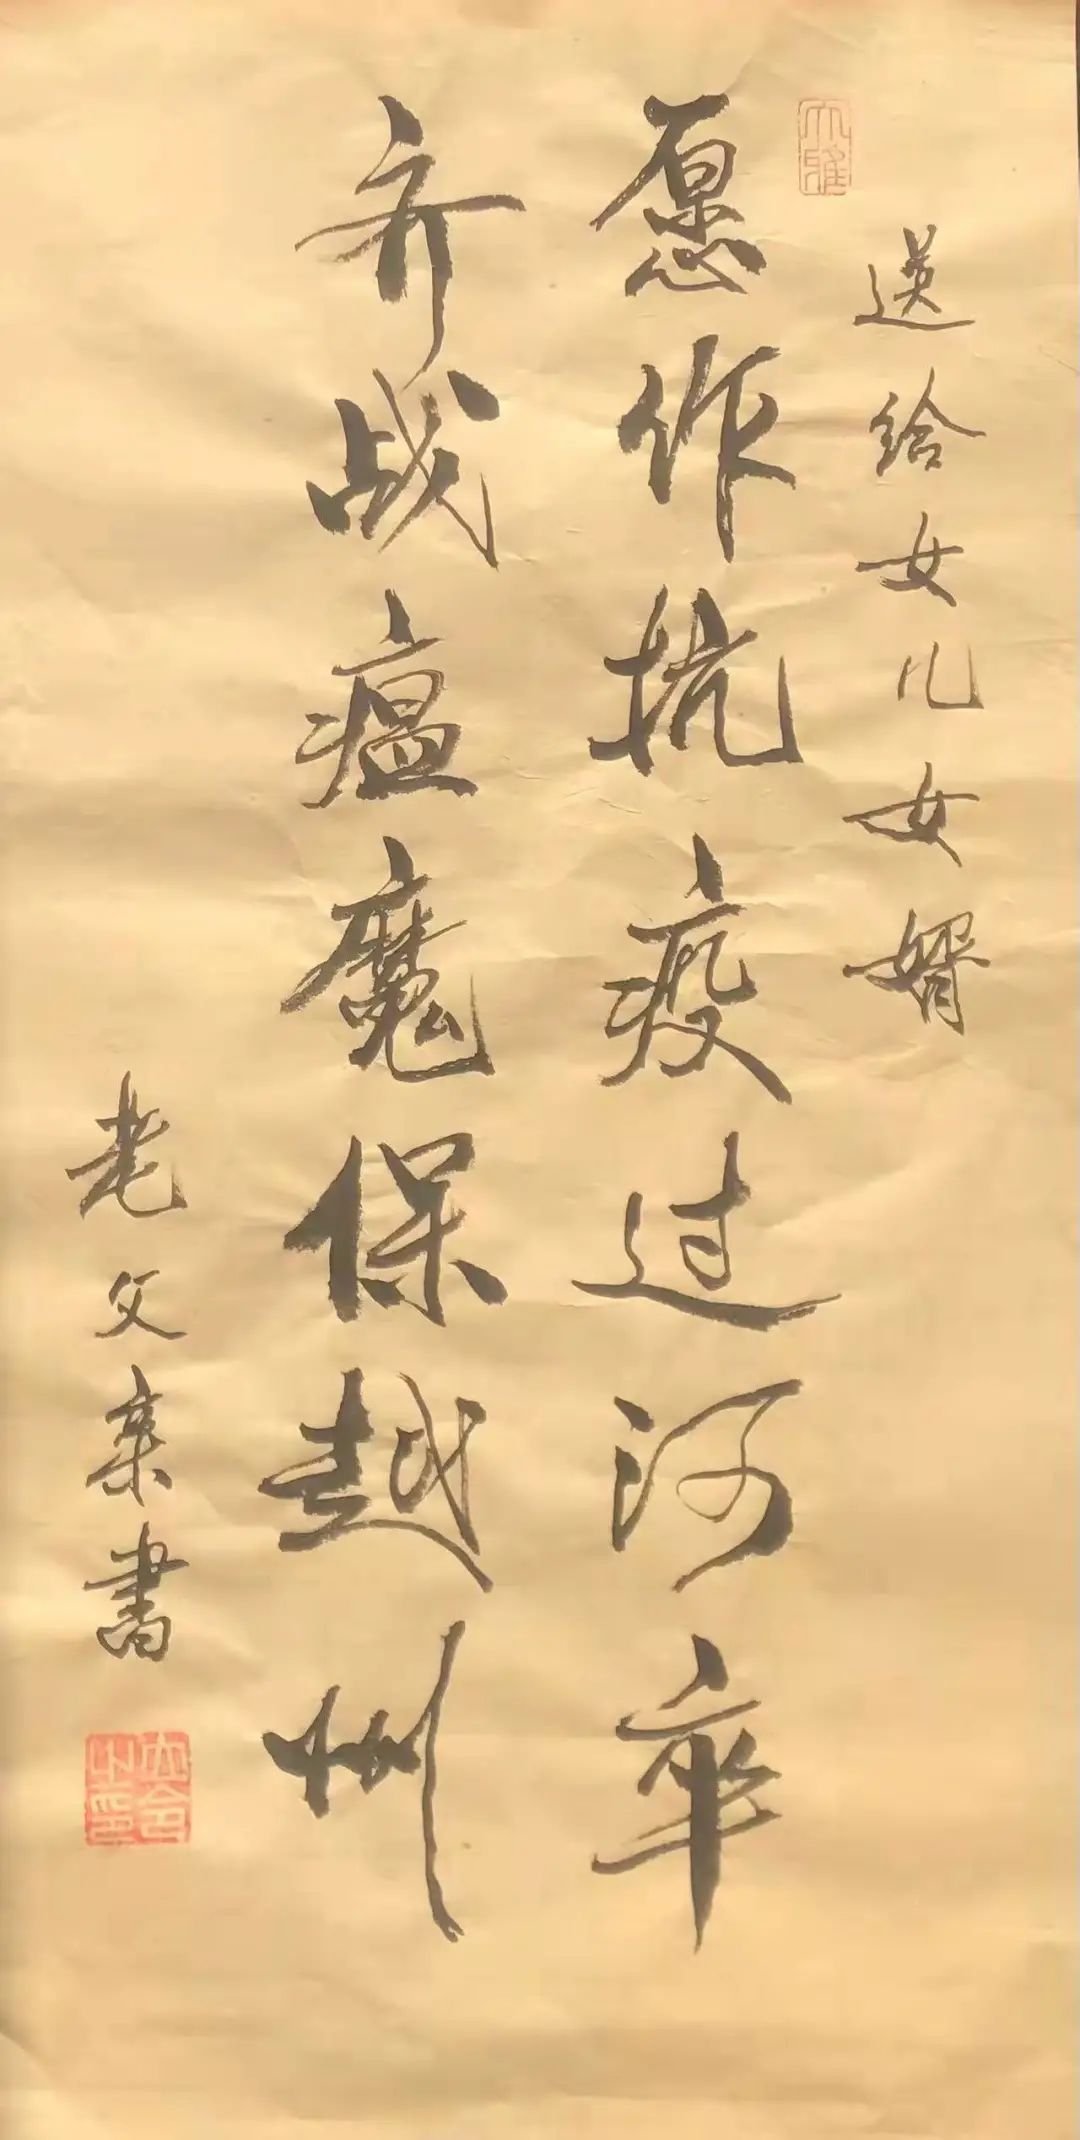 送给女儿女婿
愿作抗疫过河卒
齐战瘟魔保越州
老父亲书
大雅